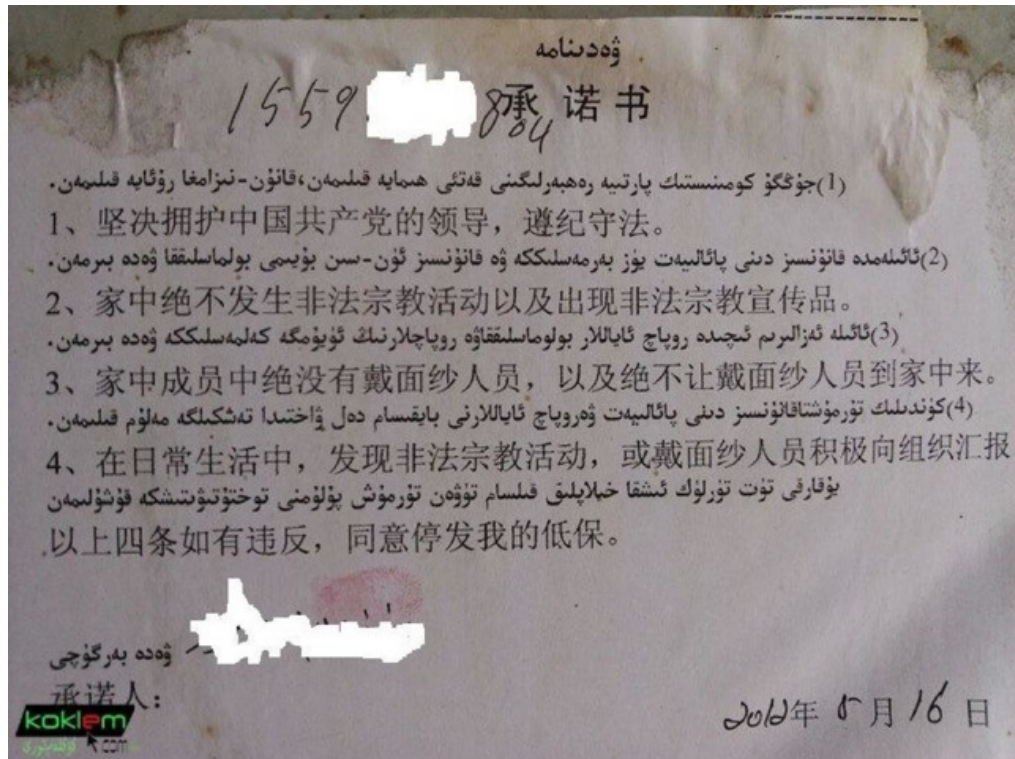 ۋەدىنامە
1559 8804
承诺书
(1)جۇڭگۇ كومىنىستىك پارتىيە رەھبەرلىگىنى قەتئى ھىمايە قىلىمەن،قانۇن-نىزامغا رۇئايە قىلىمەن.
1、坚决拥护中国共产党的领导，遵纪守法。
(2)ئائىلەمدە قانۇنسىز دىنى پائالىيەت يۈز بەرمەسلىككە ۋە قانۇنسىز ئۈن-سىن بۇيىمى بولماسلىققا ۋەدە بىرمەن.
2、家中绝不发生非法宗教活动以及出现非法宗教宣传品。
(3)ئائىلە ئەزالىرىم ئىچىدە روپاچ ئاياللار بولوماسلىققاۋە روپاچلارنىڭ ئۈيۈمگە كەلمەسلىككە ۋەدە بىرمەن.
3、家中成员中绝没有戴面纱人员，以及绝不让戴面纱人员到家中来。
(4)كۈندىلىك تۇرمۇشتاقانۇنسىز دىنى پائالىيەت ۋەروپاچ ئاياللارنى بايقىسام دەل ۋاختىدا تەشكىلگە مەلۇم قىلىمەن.
4、在日常生活中，发现非法宗教活动，或戴面纱人员积极向组织汇报
يۇقارقى تۆت تۈرلۈك ئىشقا خىلاپلىق قىلسام تۆۋەن تۇرمۇش پۇلۇمنى توختۇتىۋىتىشكە قۇشۇلىمەن
以上四条如有违反，同意停发我的低保。
ۋەدە بەرگۈچى
承诺人：
2012年 5月 16日
koklem
.com